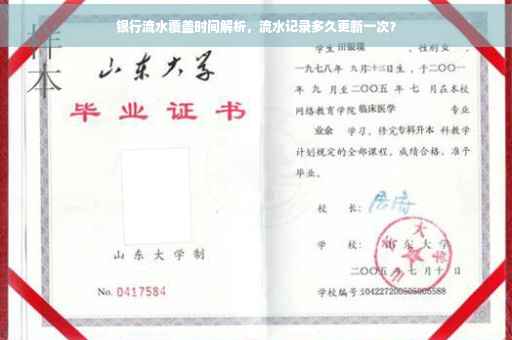 银行流水覆盖时间解析，流水记录多久更新一次？
样本
山东大学
毕业证书
山东大学制
No. 0417584
学生 田银瑞 ，性别 女 ，
一九七八年 九月十三日生，于二〇〇一
年 九 月至二〇〇五 年 七 月在本校
网络教育学院 临床医学 专业
业余 学习，修完 专科升本 科教学
计划规定的全部课程，成绩合格，准予
毕业。
校 长：
学 校： 山东大学
二〇〇五 年 七 月 十 日
学校编号：104227200505005588